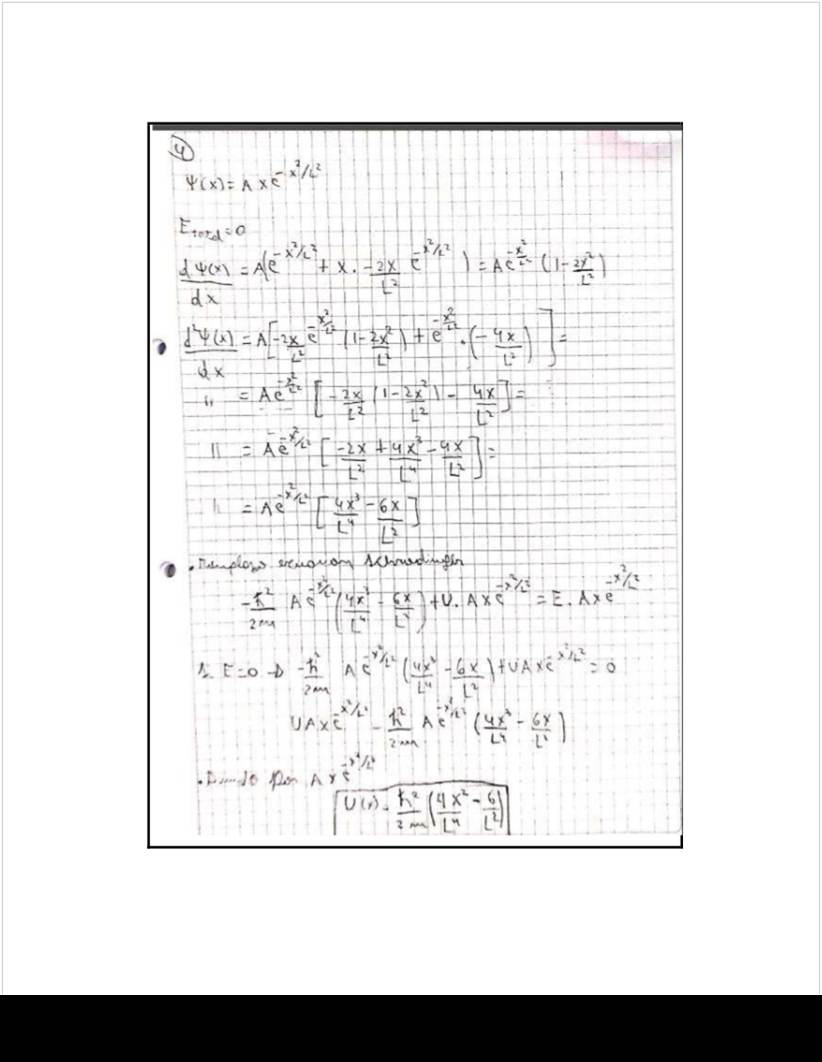 4
Ψ(x) = A x e^{-x²/L²}
E_total = 0
dΨ(x)/dx = A(e^{-x²/L²} + x · -2x/L² e^{-x²/L²}) = A e^{-x²/L²} (1 - 2x²/L²)
d²Ψ(x)/dx = A[-2x/L² e^{-x²/L²} (1 - 2x²/L²) + e^{-x²/L²} · (-4x/L²)] =
" = A e^{-x²/L²} [-2x/L² (1 - 2x²/L²) - 4x/L²] =
" = A e^{-x²/L²} [-2x/L² + 4x³/L⁴ - 4x/L²] =
" = A e^{-x²/L²} [4x³/L⁴ - 6x/L²]
· Remplazo ecuacion Schrodinger
-ħ²/2m A e^{-x²/L²} (4x³/L⁴ - 6x/L²) + U · A x e^{-x²/L²} = E · A x e^{-x²/L²}
E = 0 → -ħ²/2m A e^{-x²/L²} (4x³/L⁴ - 6x/L²) + U A x e^{-x²/L²} = 0
U A x e^{-x²/L²} = ħ²/2m A e^{-x²/L²} (4x³/L⁴ - 6x/L²)
· Divido por A x e^{-x²/L²}
U(x) = ħ²/2m (4x²/L⁴ - 6/L²)